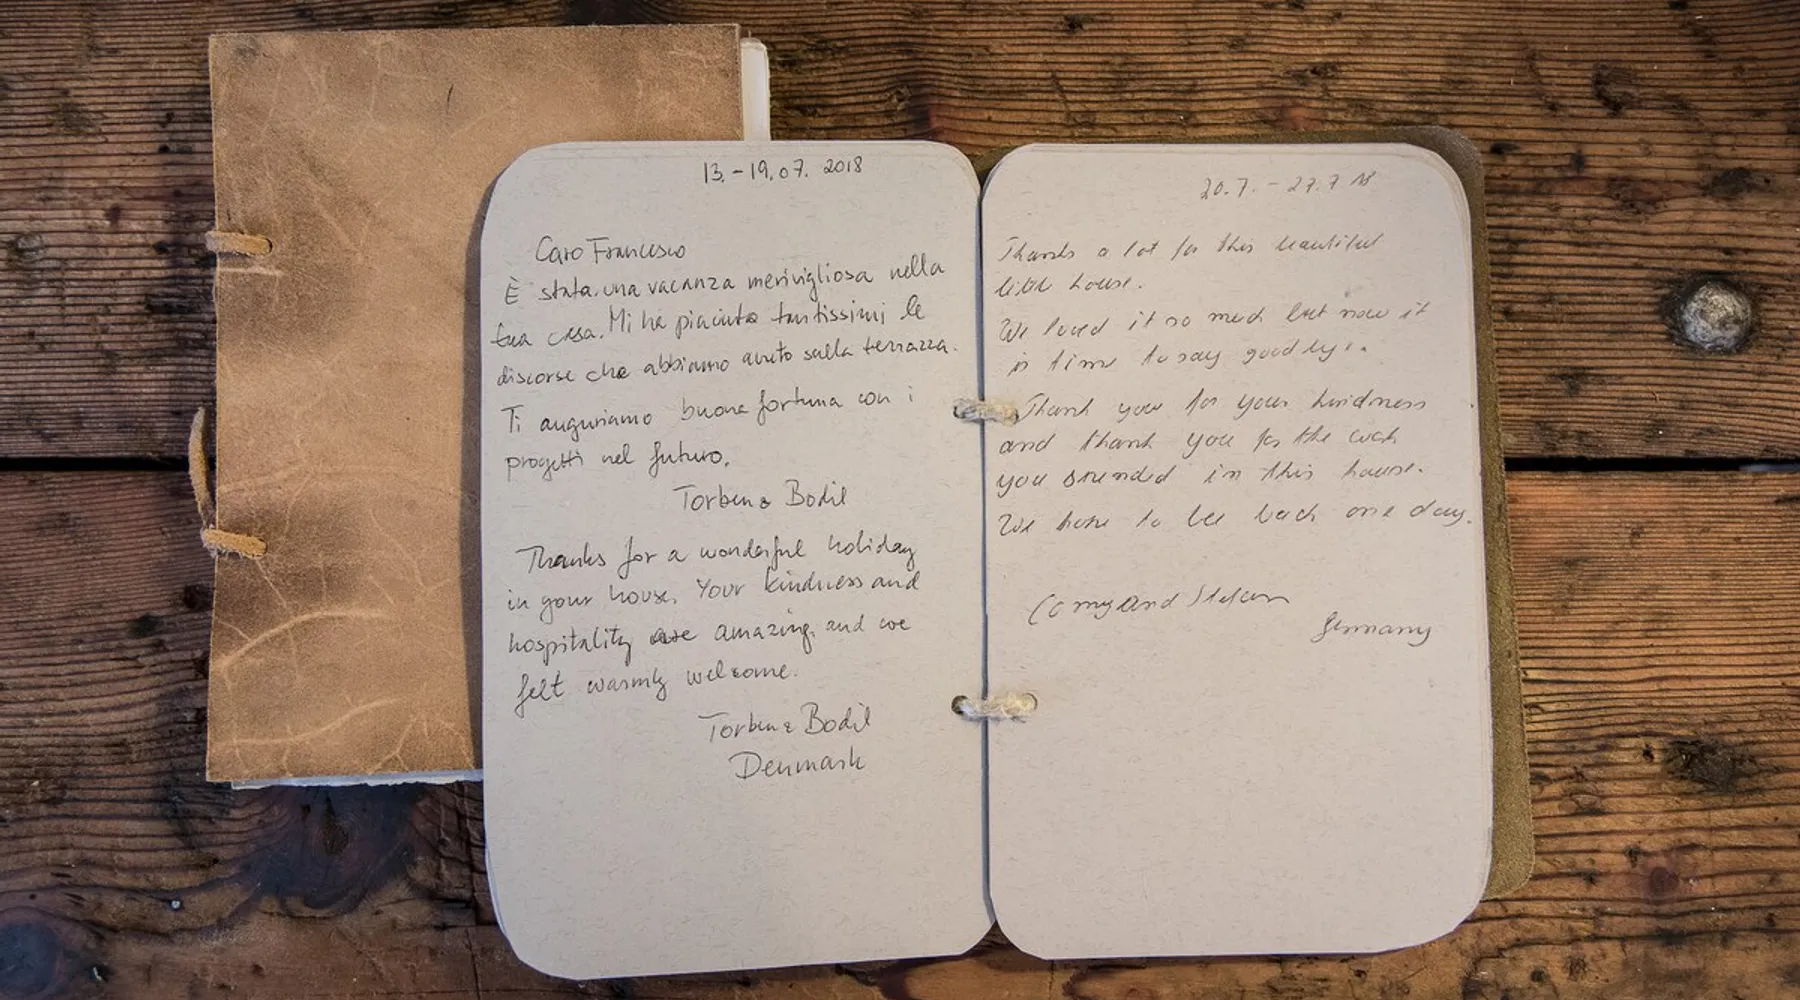 13.-19.07. 2018
Caro Francesco
È stata una vacanza merivigliosa nella
tua casa. Mi ha piaciuto tantissimi le
discorse che abbiamo avuto sulla terrazza.
Ti auguriamo buona fortuna con i
progetti nel futuro.
Torben & Bodil
Thanks for a wonderful holiday
in your house. Your kindness and
hospitality are amazing, and we
felt warmly welcome.
Torben & Bodil
Denmark
20.7. - 27.7 18
Thanks a lot for this beautiful
little house.
We loved it so much but now it
is time to say goodbye.
Thank you for your kindness
and thank you for the work
you in this house.
We hope to be back one day.
and Stefan
Germany